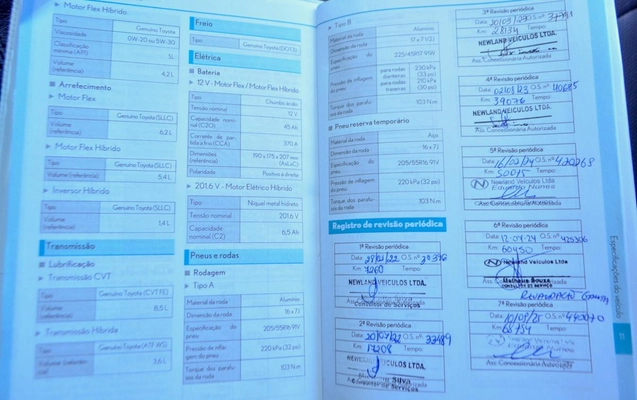 Motor Flex Híbrido
Tipo Genuíno Toyota
Viscosidade 0W-20 ou 5W-30
Classificação mínima (API) SL
Volume (referência) 4,2 L
Arrefecimento
Motor Flex
Tipo Genuíno Toyota (SLLC)
Volume (referência) 6,2 L
Motor Flex Híbrido
Tipo Genuíno Toyota (SLLC)
Volume (referência) 5,4 L
Inversor Híbrido
Tipo Genuíno Toyota (SLLC)
Volume (referência) 1,4 L
Transmissão
Lubrificação
Transmissão CVT
Tipo Genuíno Toyota (CVT FE)
Volume (referência) 8,5 L
Transmissão Híbrida
Tipo Genuíno Toyota (ATF WS)
Volume (referência) 3,6 L
Freio
Tipo Genuíno Toyota (DOT3)
Elétrica
Bateria
12 V - Motor Flex / Motor Flex Híbrido
Tipo Chumbo ácido
Tensão nominal 12 V
Capacidade nominal (C20) 45 Ah
Corrente de partida a frio (CCA) 370 A
Dimensões (referência) 190 x 175 x 207 mm (AxLxC)
Polaridade Positivo à direita
201.6 V - Motor Elétrico Híbrido
Tipo Níquel metal hidreto
Tensão nominal 201.6 V
Capacidade nominal (C2) 6,5 Ah
Pneus e rodas
Rodagem
Tipo A
Material da roda Alumínio
Dimensão da roda 16 x 7J
Especificação do pneu 205/55R16 91V
Pressão de inflagem do pneu 220 kPa (32 psi)
Torque dos parafusos da roda 103 N.m
Tipo B
Material da roda Alumínio
Dimensão da roda 17 x 7 1/2J
Especificação do pneu 225/45R17 95W
Pressão de inflagem do pneu
para rodas dianteiras 230 kPa (33 psi)
para rodas traseiras 210 kPa (30 psi)
Torque dos parafusos da roda 103 N.m
Pneu reserva temporário
Material da roda Aço
Dimensão da roda 16 x 7J
Especificação do pneu 205/55R16 91V
Pressão de inflagem do pneu 220 kPa (32 psi)
Torque dos parafusos da roda 103 N.m
Registro de revisão periódica
1ª Revisão periódica
Data O.S. nº
Km: Tempo:
NEWLAND VEICULOS LTDA.
Consultor de Serviços
2ª Revisão periódica
Data O.S. nº 33489
Km: 17208 Tempo:
NEWLAND VEICULOS LTDA.
Silva
Consultor de Serviços
3ª Revisão periódica
Data O.S. nº
Km: 28134 Tempo:
NEWLAND VEICULOS LTDA.
Ass. Concessionária Autorizada
4ª Revisão periódica
Data: 02/08/23 O.S. nº 40685
Km: 39076 Tempo:
NEWLAND VEICULOS LTDA.
Ass. Concessionária Autorizada
5ª Revisão periódica
Data: 16/02/24 O.S. nº 420268
Km: 50015 Tempo:
Newland Veículos Ltda
Ass. Concessionária Autorizada
6ª Revisão periódica
Data: 12.07.24 O.S. nº 425306
Km: 60450 Tempo:
Newland Veículos LTDA
Matheus Souza
CONSULTOR DE SERVIÇO
7ª Revisão periódica
Data: 10/01/25 O.S. nº 440070
Km: 68754 Tempo:
Ass. Concessionária Autorizada
Especificações do veículo
11